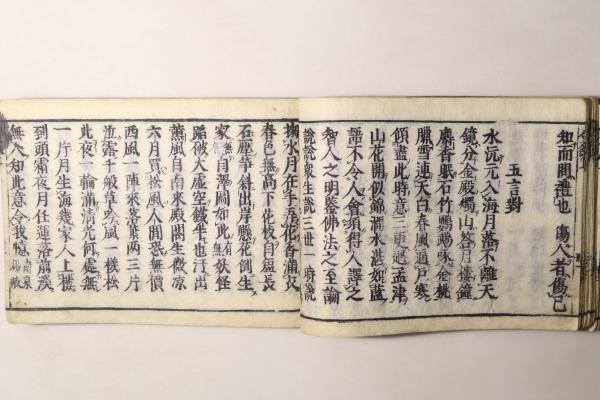 知而問禮也　傷人者傷己
五言對
水流元入海月落不離天
鏡分金殿燭山答月樓鐘
麝香眠石竹鸚鵡啄金桃
臘雪連天白春風逼戸寒
傾盡此時意三更過孟津
山花開似錦澗水湛如藍
語不令人會須得人譯之
智人之明鑒佛法之至論
説説衆生説三世一時説
掬水月在手弄花香滿衣
春色無高下花枝自短長
石壓笋斜出岸懸花倒生
家無白澤圖如此無妖怪
蹈破大虚空鐵牛也汗出
薫風自南來殿閣生微凉
六月買松風人間恐無價
西風一陣來落葉兩三片
泣露千般草吟風一樣松
此夜一輪滿清光何處無
一片月生海幾家人上樓
到頭霜夜月任運落前溪
無人知此意令我憶南泉